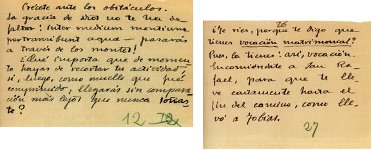 Crécete ante los obstáculos.
La gracia de Dios no te ha de
faltar: inter medium montium
pertransibunt aquæ — ¡pasarás
a través de los montes!
¿Qué importa que de momen-
to hayas de recortar tu actividad
si, luego, como muelle que fué
comprimido, llegarás sin compara-
ción más lejos que nunca soñas-
te?
12
26
¿Te ríes, porque te digo que
tienes vocación matrimonial?
Pues, la tienes: así, vocación.
Encomiéndate a San Ra-
fael, para que te lle-
ve castamente hasta el
fin del camino, como lle-
vó a Tobías.
27